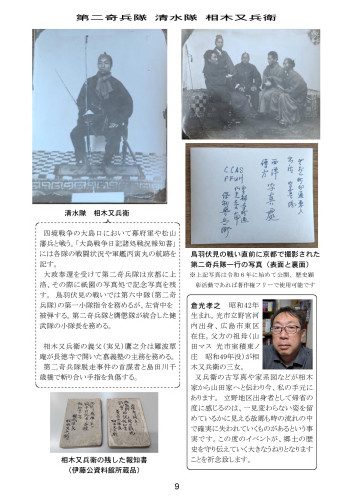 第二奇兵隊 清水隊 相木又兵衛
清水隊 相木又兵衛
四境戦争の大島口において幕府軍や松山
藩兵と戦う。「大島戦争日記諸処戦況報知書」
には各隊の戦闘状況や軍艦丙寅丸の航跡を
記す。
大政奉還を受けて第二奇兵隊は京都に上
洛、その際に祇園の写真処で記念写真を残
す。 鳥羽伏見の戦いでは第六中隊(第二奇
兵隊)の第一小隊指令を務めるが、左背中を
被弾する。第二奇兵隊と膺懲隊が統合した健
武隊の小隊長を務める。
相木又兵衛の義父(実兄)廣之介は羅漢草
庵が長徳寺で開いた嘉義塾の主務を務める。
第二奇兵隊脱走事件の首謀者と島田川千
歳橋で斬り合い手指を負傷する。
相木又兵衛の残した報知書
(伊藤公資料館所蔵品)
鳥羽伏見の戦い直前に京都で撮影された
第二奇兵隊一行の写真(表面と裏面)
※上記写真は令和6年に始めて公開、歴史顕
彰活動であれば著作権フリーで使用可能です
倉光孝之 昭和42年
生まれ。光市立野宮河
内出身、広島市東区
在住。父方の祖母(山
田マス 光市束積東ノ
庄 昭和49年没)が相
木又兵衛の三女。
又兵衛の古写真や家系図などが相木
家から山田家へと伝わり今、私の手元に
あります。 立野地区出身者として帰省の
度に感じるのは、一見変わらない姿を留
めているかに見える故郷も時の流れの中
で確実に失われていくものがあるという事
実です。この度のイベントが、郷土の歴
史を守り伝えていく大きなうねりとなります
ことを祈念致します。
9